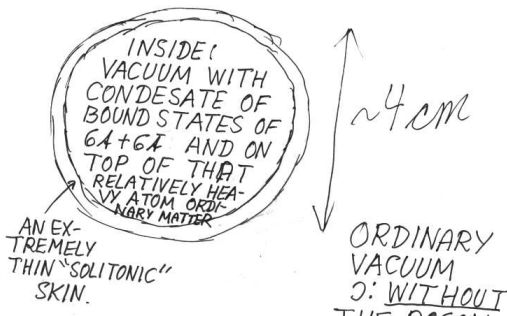 INSIDE:
VACUUM WITH
CONDESATE OF
BOUND STATES OF
AND ON
TOP OF THAT
RELATIVELY HEA-
VY ATOM ORDI-
NARY MATTER
~4 cm
AN EX-
TREMELY
THIN "SOLITONIC"
SKIN.
ORDINARY
VACUUM
WITHOUT